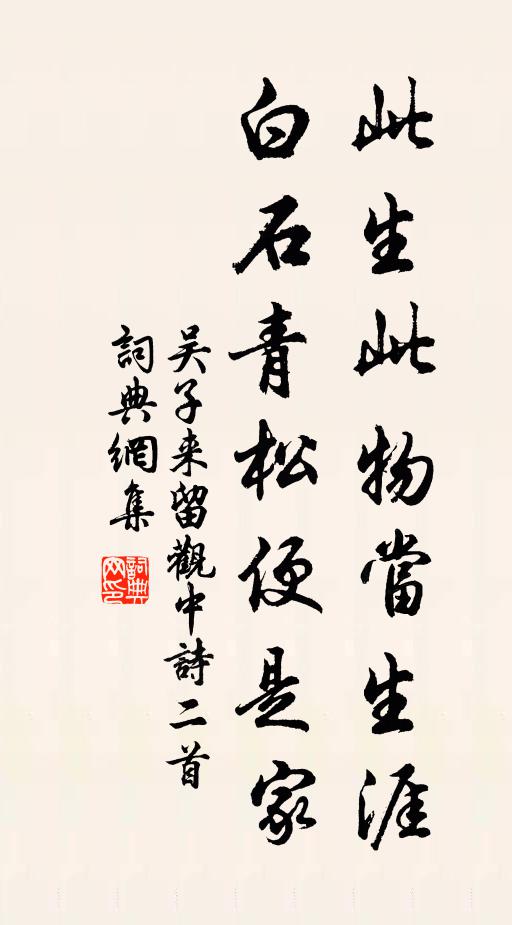 此生此物當生涯
白石青松便是家
吴子来留觀中詩二首
詞典網集
詞典網印